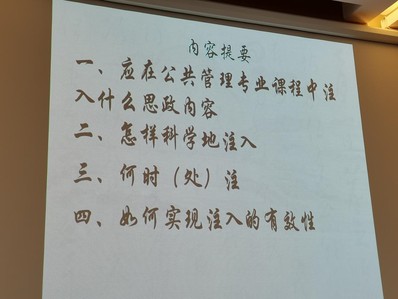 内容提要
一、应在公共管理专业课程中注
入什么思政内容
二、怎样科学地注入
三、何时（处）注
四、如何实现注入的有效性